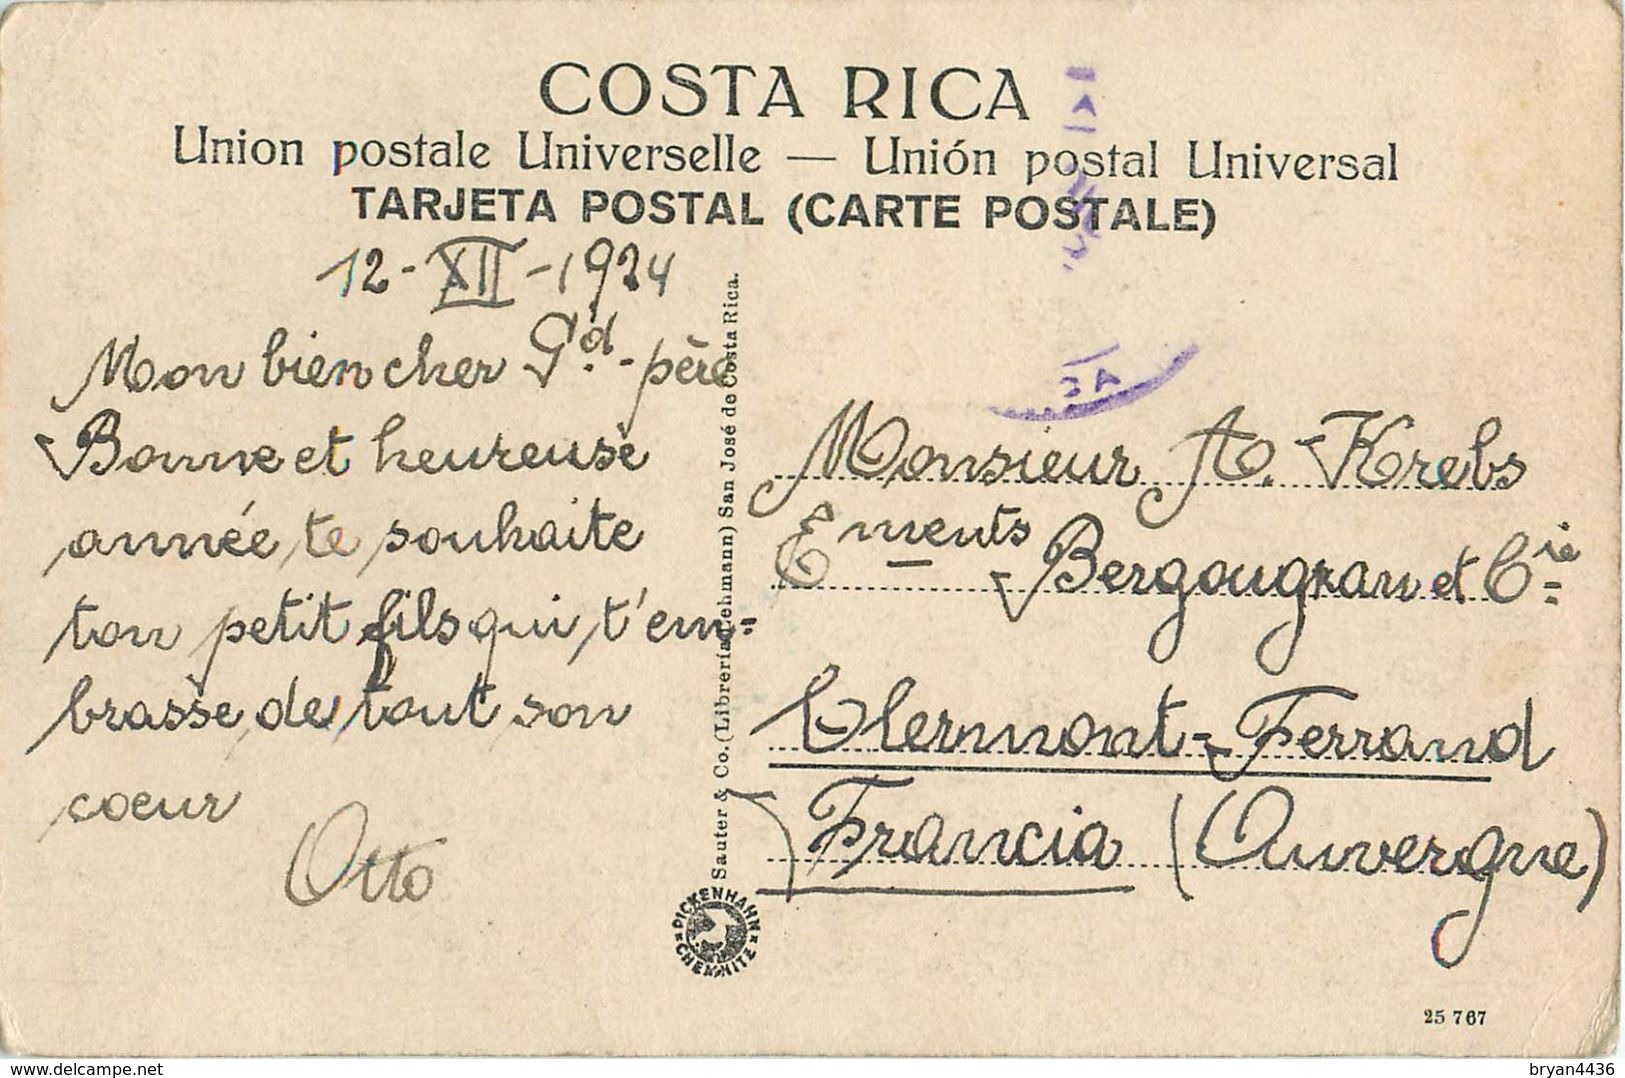 COSTA RICA
Union postale Universelle — Unión postal Universal
TARJETA POSTAL (CARTE POSTALE)
12-XII-1924
Mon bien cher Gd.-père
Bonne et heureuse
année te souhaite
ton petit fils qui t'em=
brasse de tout son
coeur
Otto
Sauter & Co. (Librería Lehmann) San José de Costa Rica.
Monsieur A. Krebs
Ements Bergougnan et Cie
Clermont-Ferrand
Francia (Auvergne)
PICKENHAHN
CHEMNITZ
25 767
delcampe.net
bryan4436